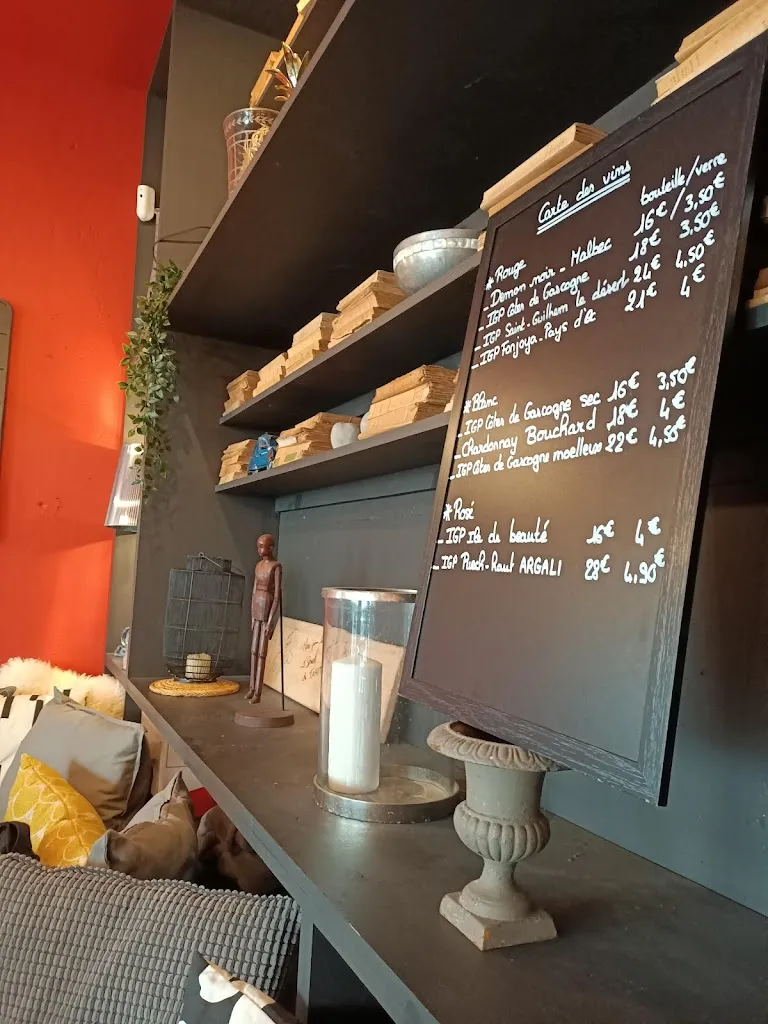 Carte des vins
bouteille/verre
* Rouge
- Demon noir - Malbec 16€ / 3,50€
- IGP Côtes de Gascogne 18€ 3,50€
- IGP Saint-Guilhem le désert 24€ 4,50€
- IGP Fonjoya - Pays d'Oc 21€ 4€
* Blanc
- IGP Côtes de Gascogne sec 16€ 3,50€
- Chardonnay Bouchard 18€ 4€
- IGP Côtes de Gascogne moelleux 22€ 4,50€
* Rosé
- IGP Ile de beauté 16€ 4€
- IGP Puech-haut ARGALI 28€ 4,90€